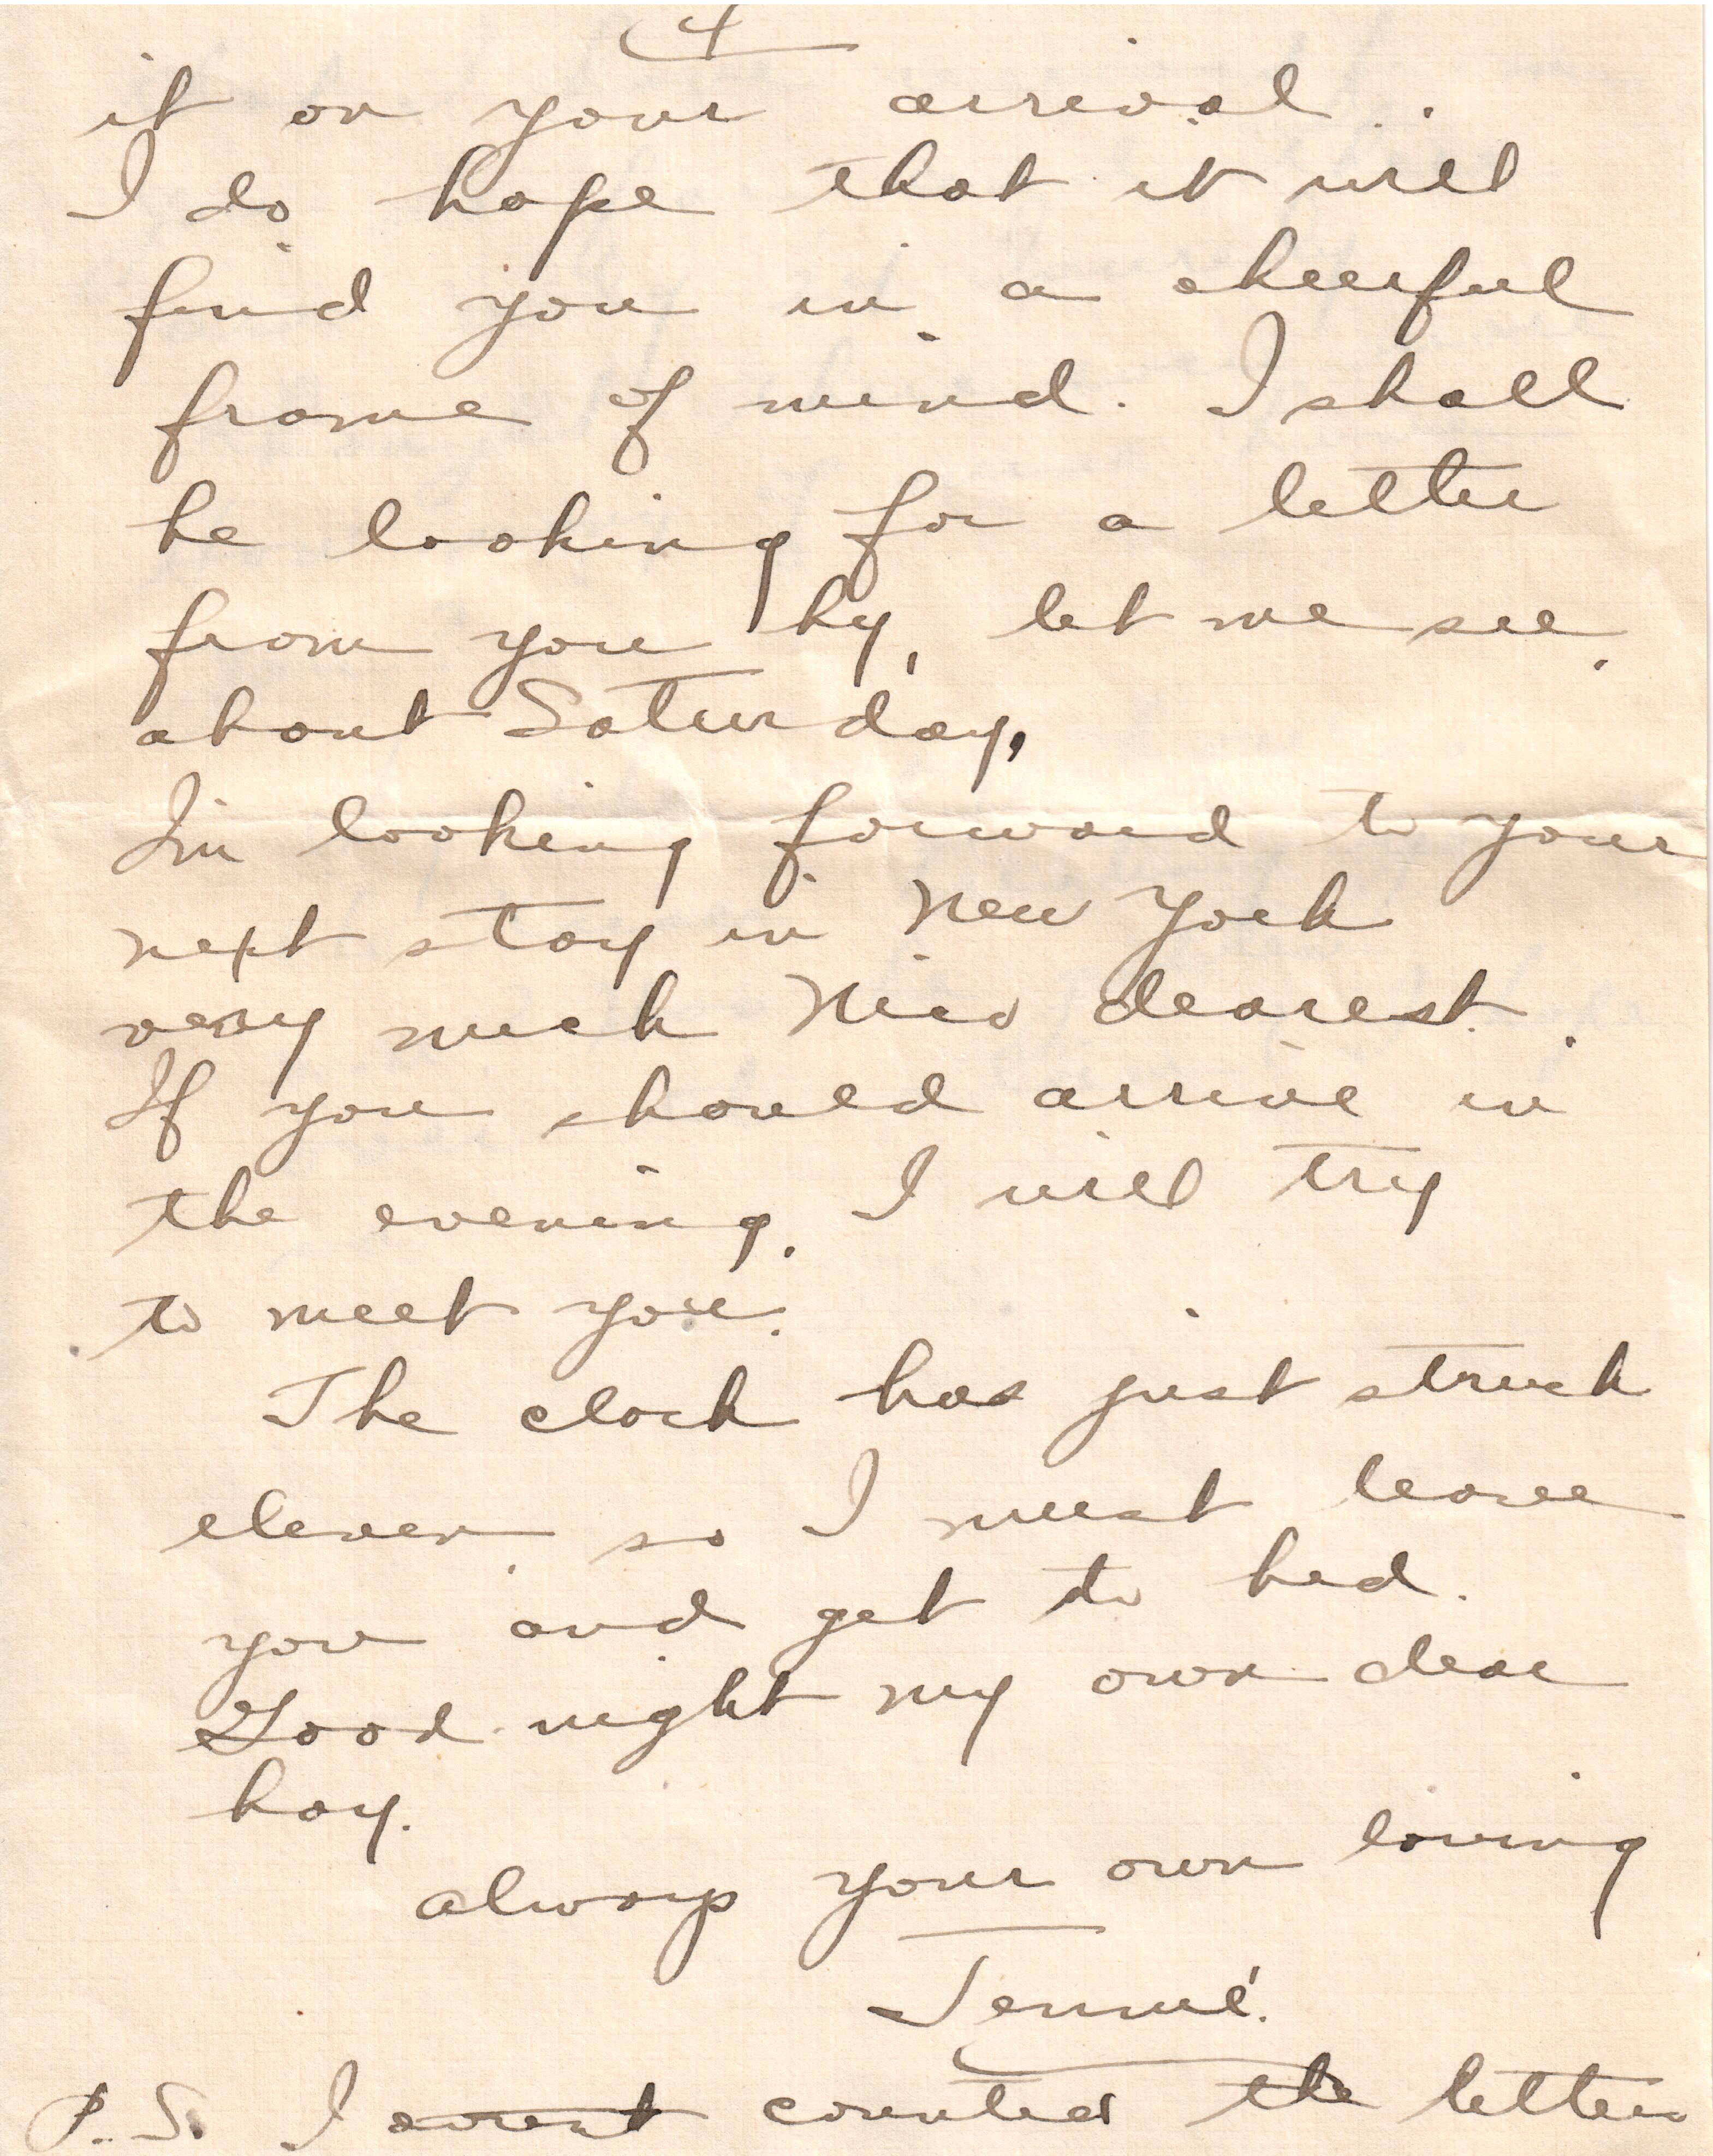 4
it on your arrival.
I do hope that it will
find you in a cheerful
frame of mind. I shall
be looking for a letter
from you by, let me see,
about Saturday,
I'm looking forward to your
next stay in New York
very much Nico dearest.
If you should arrive in
the evening, I will try
to meet you.
The clock has just struck
eleven, so I must leave
you and get to bed.
Good night my own dear
boy.
Always your own loving
Jennie.
P.S. I counted the letters